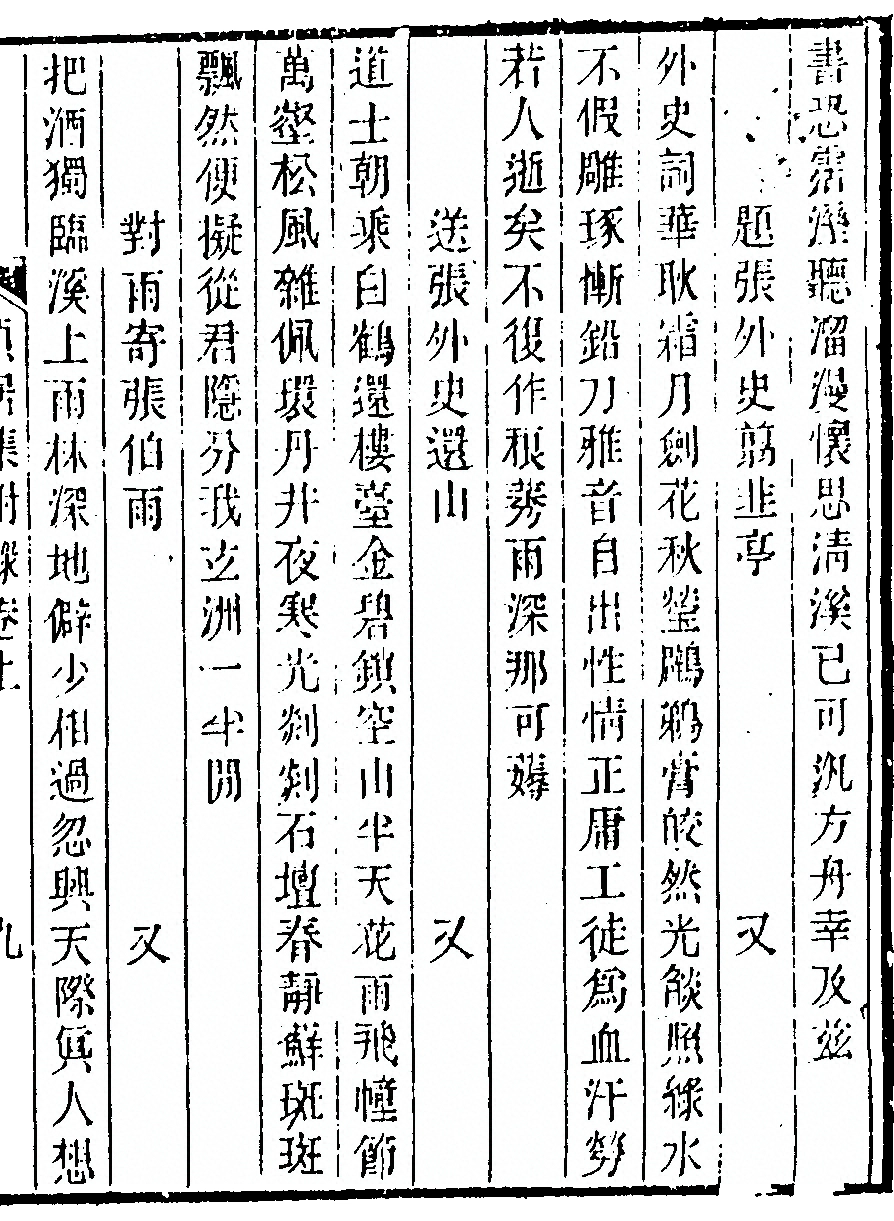 書恐霑溼聽溜漫懷思清溪已可汎方舟幸及茲
題張外史翦韭亭 又
外史詞華耿霜月劍花秋瑩鸊鵜膏皎然光燄照綠水
不假雕琢慚鉛刀雅音自出性情正庸工徒為血汗勞
若人逝矣不復作稂莠雨深那可薅
送張外史還山 又
道士朝乘白鶴還樓臺金碧鎖空山半天花雨飛幢節
萬壑松風雜佩環丹井夜寒光剡剡石壇春靜蘚斑斑
飄然便擬從君隱分我玄洲一半閒
對雨寄張伯雨 又
把酒獨臨溪上雨林深地僻少相過忽興天際真人想
貞居集附錄卷上 九